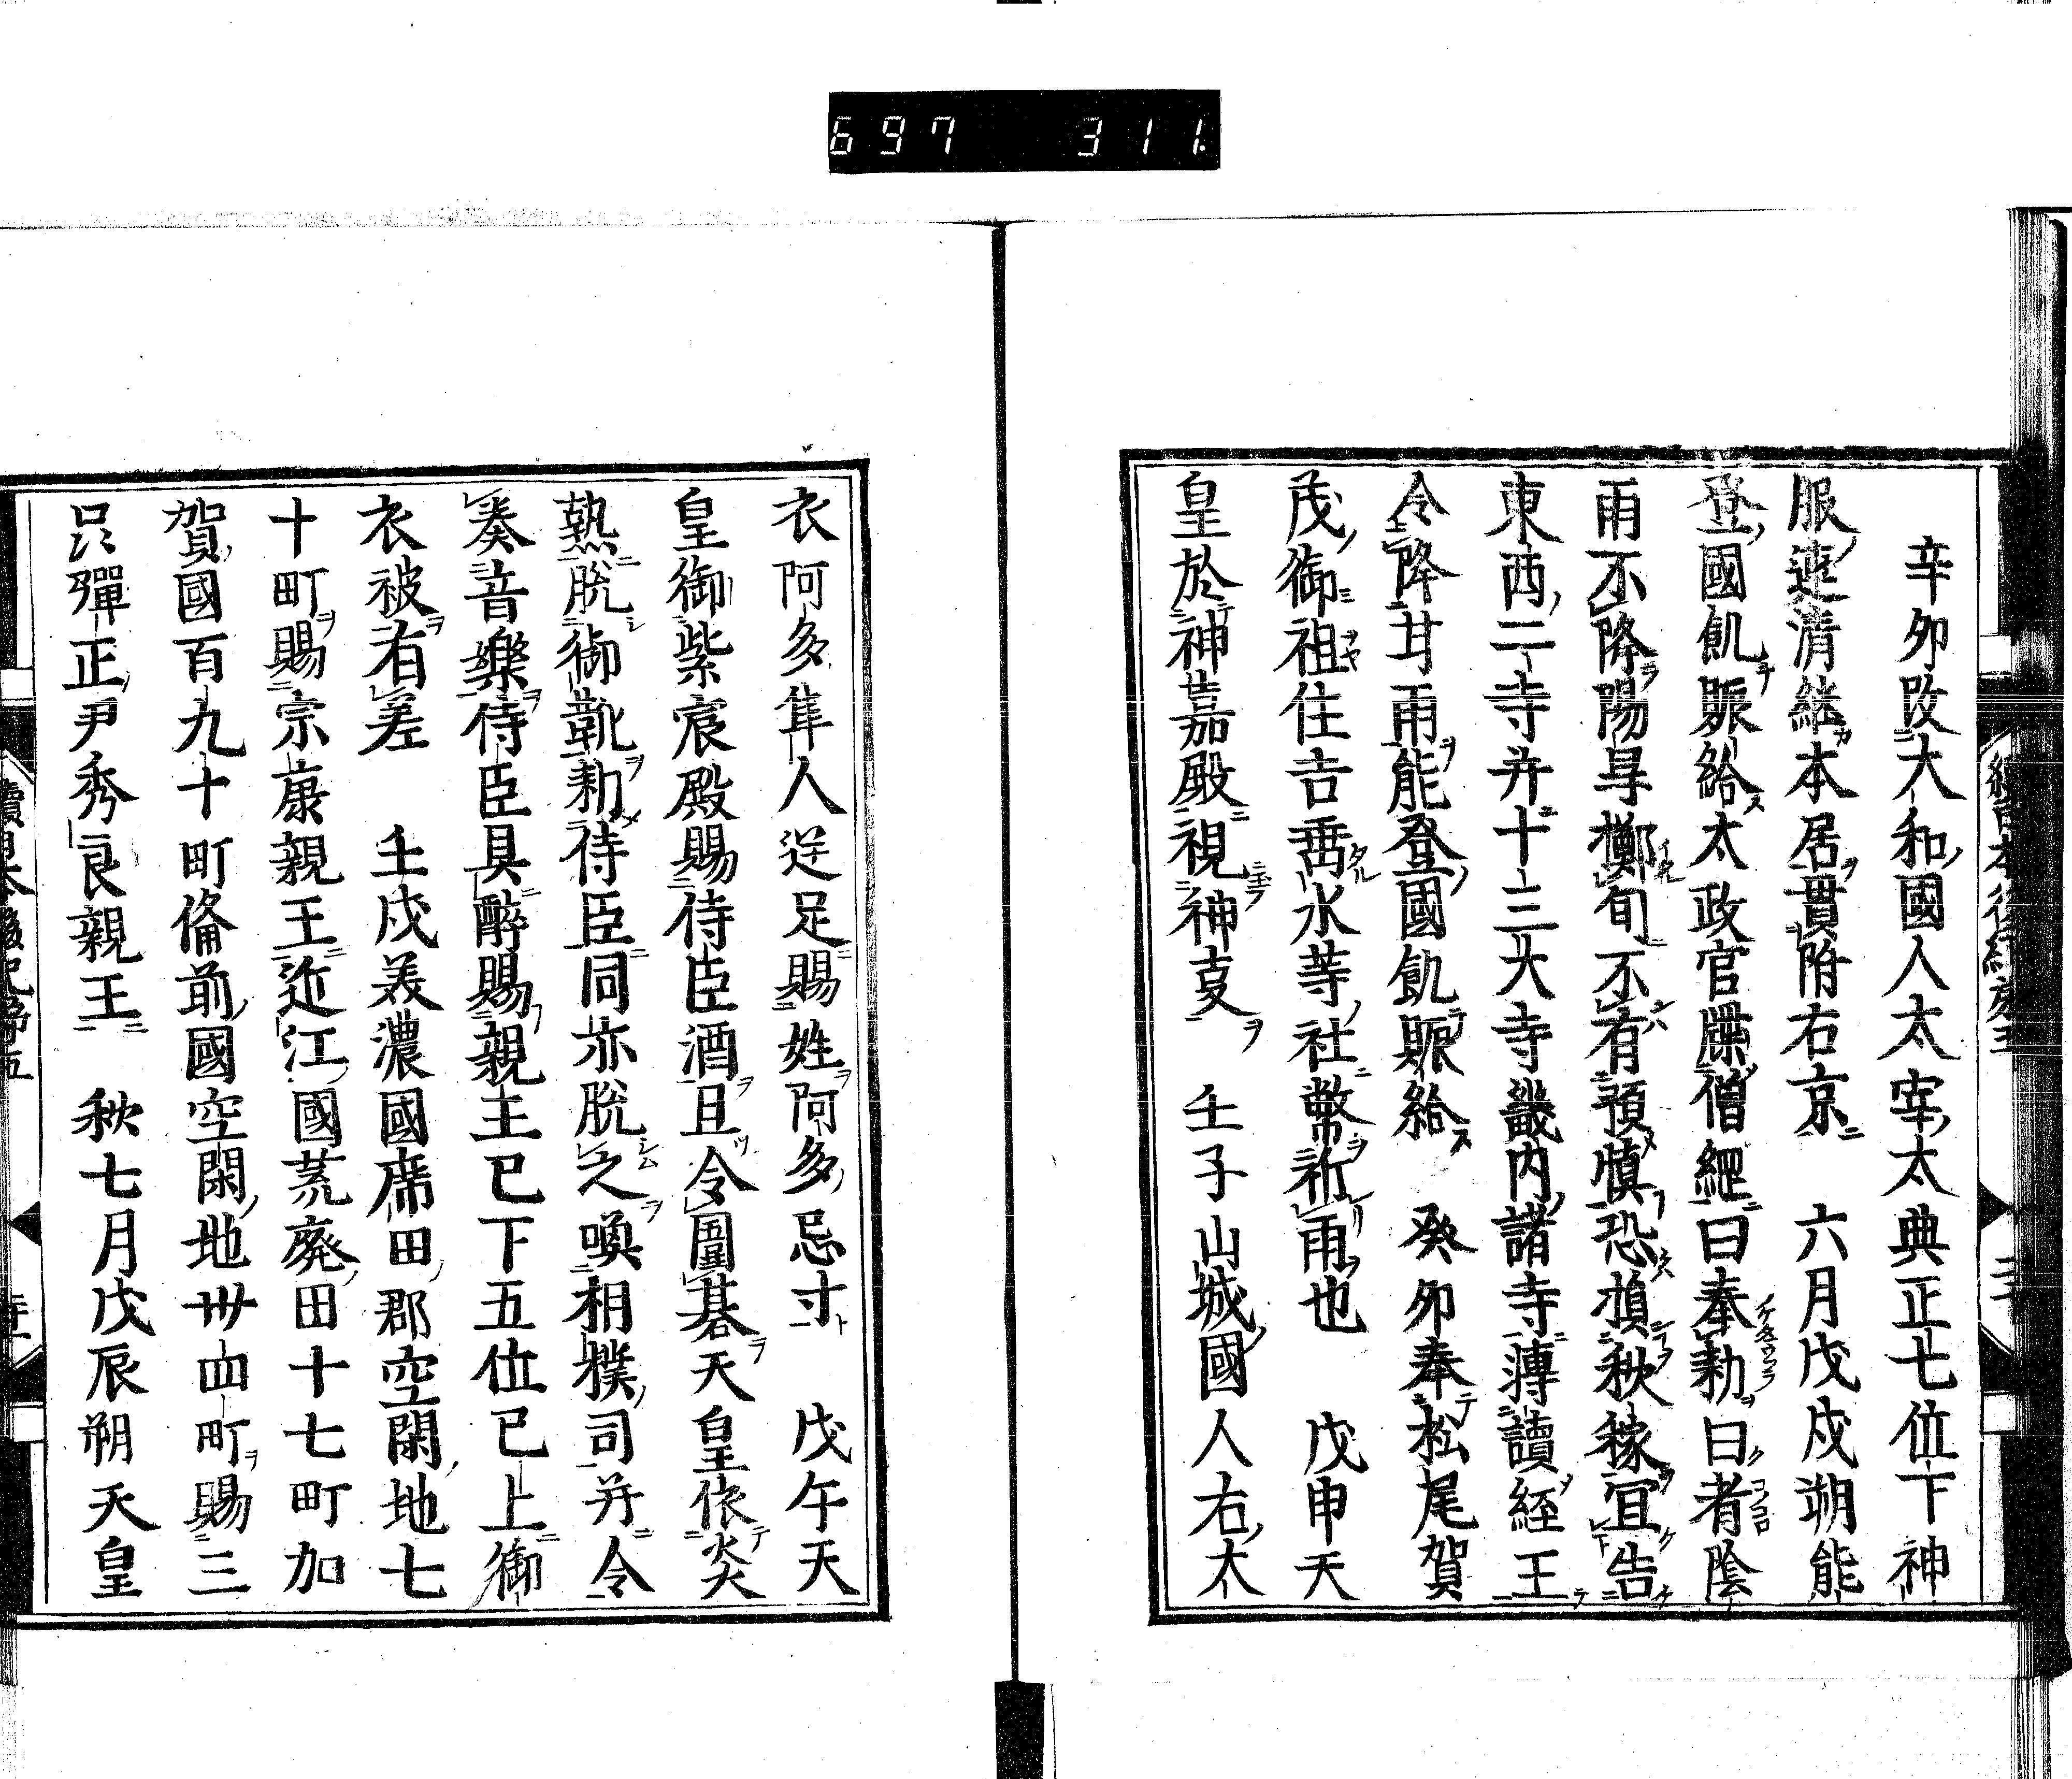 697 311.
辛夘改大和國人太宰太典正七位下神
服連清継本居貫附右京 六月戊戌朔能
登國飢賑給太政官牒僧綱曰奉勅曰者陰
雨不降陽旱擲旬不有預慎恐損秋稼宜告
東西二寺并十三大寺畿内諸寺轉讀経王
令降甘雨能登國飢賑給 癸夘奉松尾賀
茂御祖住吉垂水等社幣祈雨也 戊申天
皇於神嘉殿視神叓 壬子山城國人右太
衣阿多隼人逆足賜姓阿多忌寸 戊午天
皇御紫宸殿賜侍臣酒且令圍碁天皇依炎
熱脱御靴勅侍臣同亦脱之喚相撲司并令
奏音樂侍臣具醉賜親王已下五位已上御
衣被有差 壬戌美濃國席田郡空閑地七
十町賜宗康親王近江國荒廢田十七町加
賀國百九十町俻前國空閑地卅四町賜三
品彈正尹秀良親王 秋七月戊辰朔天皇